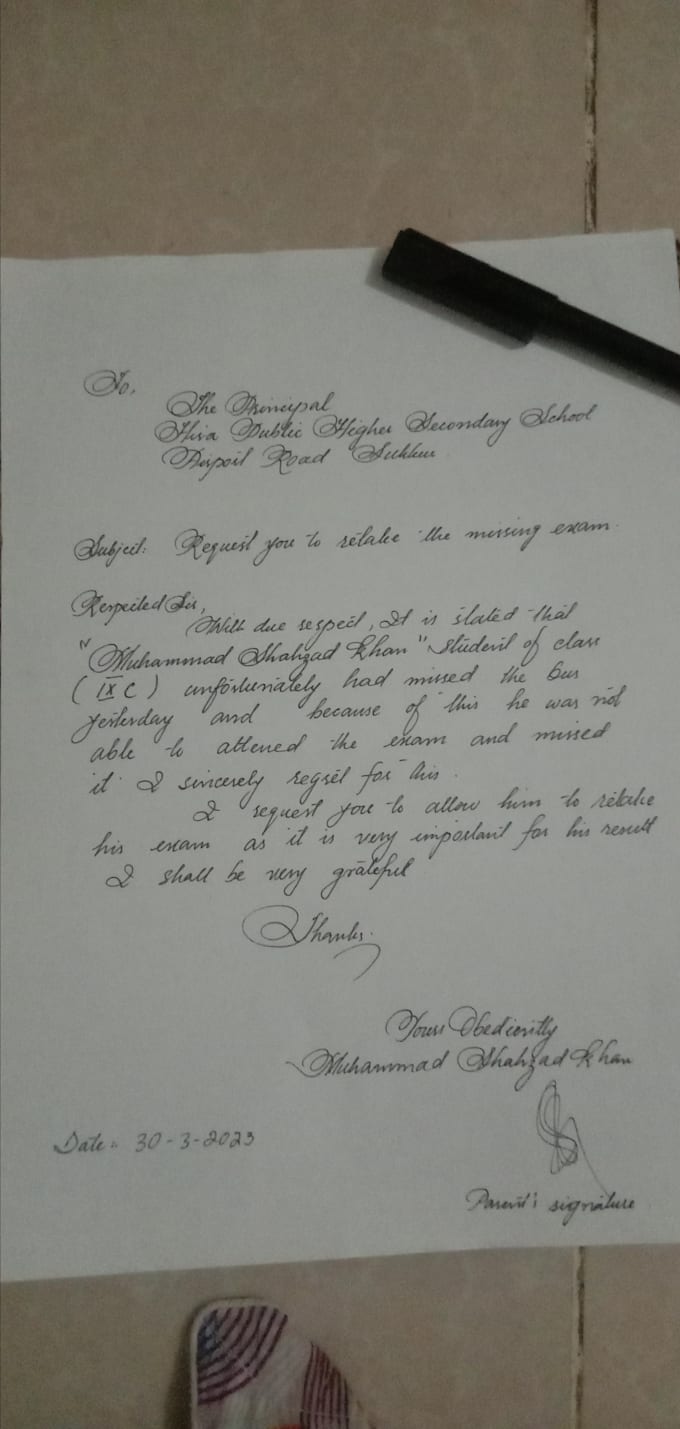 To,
The Principal
Hira Public Higher Secondary School
Airpoit Road Sukkur
Subject: Request you to retake the missing exam.
Respected Sir,
With due respect, It is stated that
"Muhammad Shahzad Khan" student of class
(IX C) unfortunately had missed the bus
yesterday and because of this he was not
able to attened the exam and missed
it. I sincerely regret for this.
I request you to allow him to retake
his exam as it is very important for his result
I shall be very grateful
Thanks.
Yours Obediently
Muhammad Shahzad Khan
Date: 30-3-2023
Parent's signature